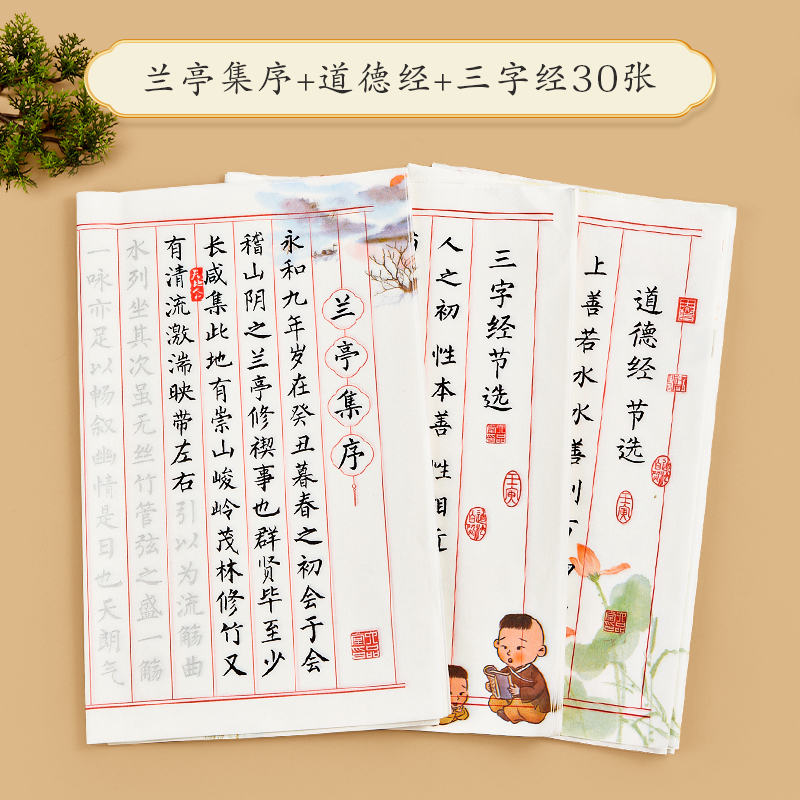 兰亭集序+道德经+三字经30张
兰亭集序
永和九年岁在癸丑暮春之初会于会
稽山阴之兰亭修禊事也群贤毕至少
长咸集此地有崇山峻岭茂林修竹又
有清流激湍映带左右引以为流觞曲
水列坐其次虽无丝竹管弦之盛一觞
一咏亦足以畅叙幽情是日也天朗气
三字经节选
壬寅
人之初 性本善 性相近
道德经 节选
壬寅
上善若水水善利万